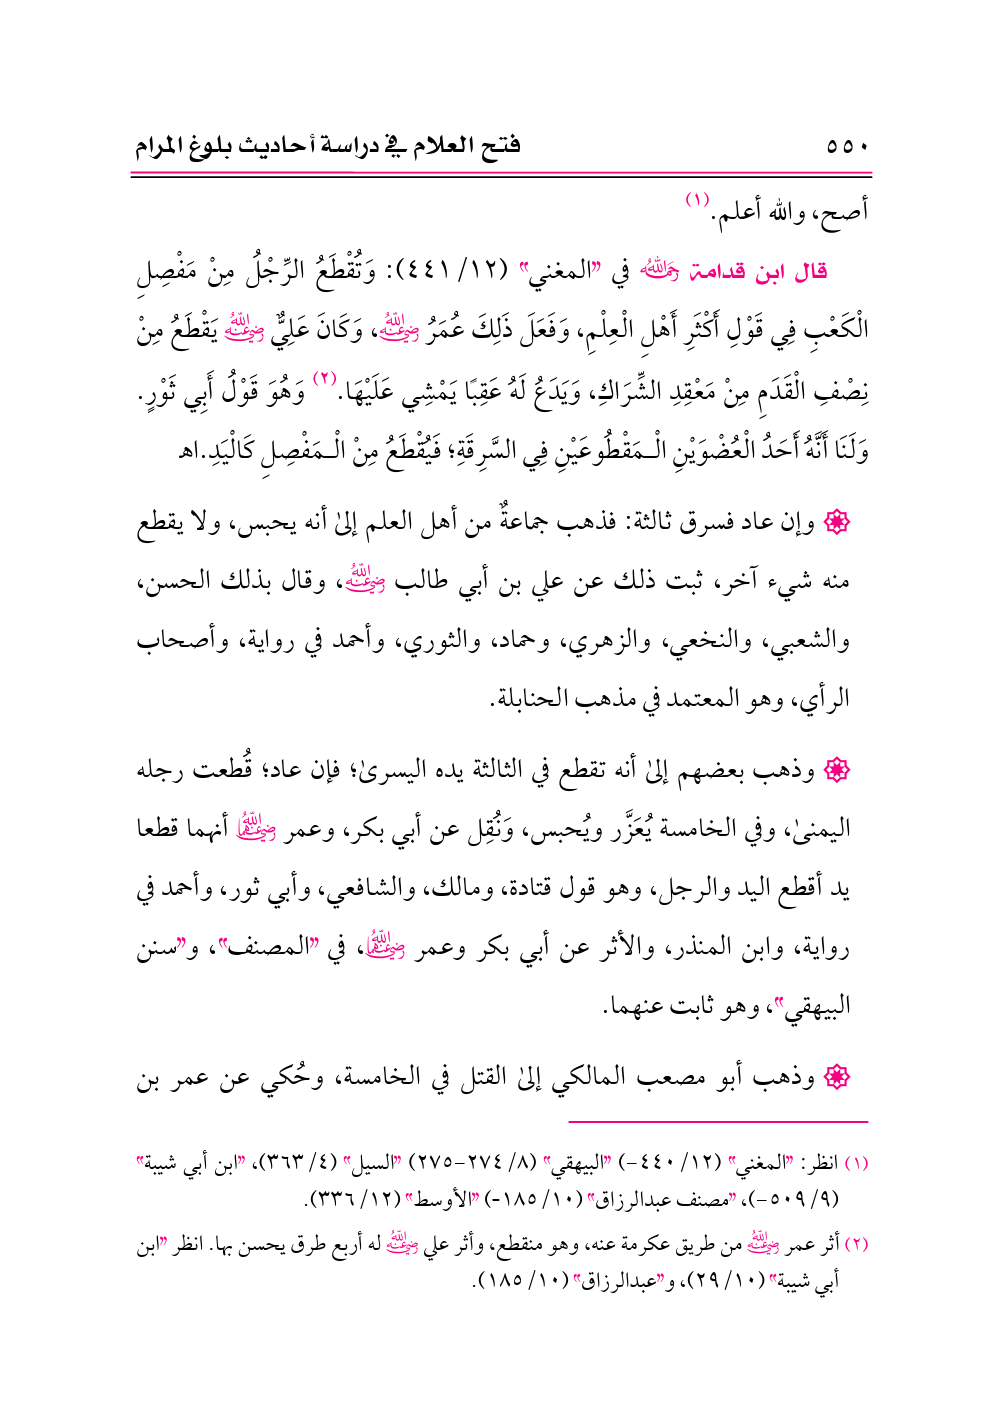 ٥٥٠ فتح العلام في دراسة أحاديث بلوغ المرام
أصح، والله أعلم.(١)
قال ابن قدامة رحمه الله في "المغني" (١٢/ ٤٤١): وَتُقْطَعُ الرِّجْلُ مِنْ مَفْصِلِ
الْكَعْبِ فِي قَوْلِ أَكْثَرِ أَهْلِ الْعِلْمِ، وَفَعَلَ ذَلِكَ عُمَرُ رضي الله عنه، وَكَانَ عَلِيٌّ رضي الله عنه يَقْطَعُ مِنْ
نِصْفِ الْقَدَمِ مِنْ مَعْقِدِ الشِّرَاكِ، وَيَدَعُ لَهُ عَقِبًا يَمْشِي عَلَيْهَا.(٢) وَهُوَ قَوْلُ أَبِي ثَوْرٍ.
وَلَنَا أَنَّهُ أَحَدُ الْعُضْوَيْنِ الْـمَقْطُوعَيْنِ فِي السَّرِقَةِ؛ فَيُقْطَعُ مِنْ الْـمَفْصِلِ كَالْيَدِ.اهـ
وإن عاد فسرق ثالثة: فذهب جماعةٌ من أهل العلم إلىٰ أنه يحبس، ولا يقطع
منه شيء آخر، ثبت ذلك عن علي بن أبي طالب رضي الله عنه، وقال بذلك الحسن،
والشعبي، والنخعي، والزهري، وحماد، والثوري، وأحمد في رواية، وأصحاب
الرأي، وهو المعتمد في مذهب الحنابلة.
وذهب بعضهم إلىٰ أنه تقطع في الثالثة يده اليسرىٰ؛ فإن عاد؛ قُطعت رجله
اليمنىٰ، وفي الخامسة يُعَزَّر ويُحبس، وَنُقِل عن أبي بكر، وعمر رضي الله عنهما أنهما قطعا
يد أقطع اليد والرجل، وهو قول قتادة، ومالك، والشافعي، وأبي ثور، وأحمد في
رواية، وابن المنذر، والأثر عن أبي بكر وعمر رضي الله عنهما، في "المصنف"، و"سنن
البيهقي"، وهو ثابت عنهما.
وذهب أبو مصعب المالكي إلىٰ القتل في الخامسة، وحُكي عن عمر بن
(١) انظر: "المغني" (١٢/ ٤٤٠-) "البيهقي" (٨/ ٢٧٤-٢٧٥) "السيل" (٤/ ٣٦٣)، "ابن أبي شيبة"
(٩/ ٥٠٩-)، "مصنف عبدالرزاق" (١٠/ ١٨٥-) "الأوسط" (١٢/ ٣٣٦).
(٢) أثر عمر رضي الله عنه من طريق عكرمة عنه، وهو منقطع، وأثر علي رضي الله عنه له أربع طرق يحسن بها. انظر "ابن
أبي شيبة" (١٠/ ٢٩)، و"عبدالرزاق" (١٠/ ١٨٥).